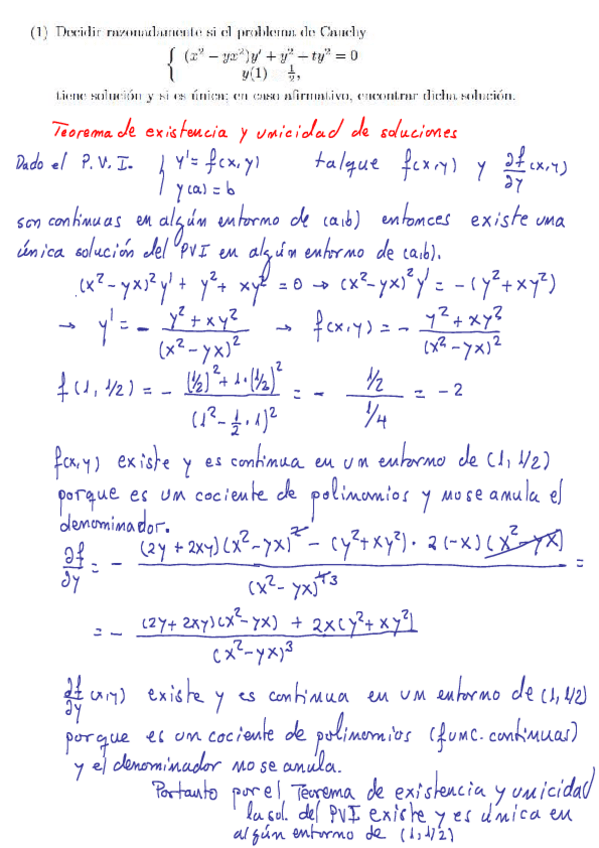 (1) Decidir razonadamente si el problema de Cauchy
{ (x² − yx²)y' + y² − ty² = 0
y(1) ½,
tiene solución y si es única; en caso afirmativo, encontrar dicha solución.
Teorema de existencia y unicidad de soluciones
Dado el P.V.I. { y' = f(x,y) tal que f(x,y) y ∂f/∂y (x,y)
y(a) = b
son continuas en algún entorno de (a,b) entonces existe una
única solución del PVI en algún entorno de (a,b).
(x² − yx)² y' + y² + xy² = 0 → (x² − yx)² y' = −(y² + xy²)
→ y' = − (y² + xy²)/(x² − yx)² → f(x,y) = − (y² + xy²)/(x² − yx)²
f(1, 1/2) = − ((1/2)² + 1·(1/2)²)/(1² − 1/2·1)² = − (1/2)/(1/4) = −2
f(x,y) existe y es continua en un entorno de (1, 1/2)
porque es un cociente de polinomios y no se anula el
denominador.
∂f/∂y = − ((2y + 2xy)(x² − yx)² − (y² + xy²)·2(−x)(x² − yx))/(x² − yx)⁴ ³ =
= − ((2y + 2xy)(x² − yx) + 2x(y² + xy²))/(x² − yx)³
∂f/∂y (x,y) existe y es continua en un entorno de (1, 1/2)
porque es un cociente de polinomios (func. continuas)
y el denominador no se anula.
Por tanto por el Teorema de existencia y unicidad
la sol. del PVI existe y es única en
algún entorno de (1, 1/2)